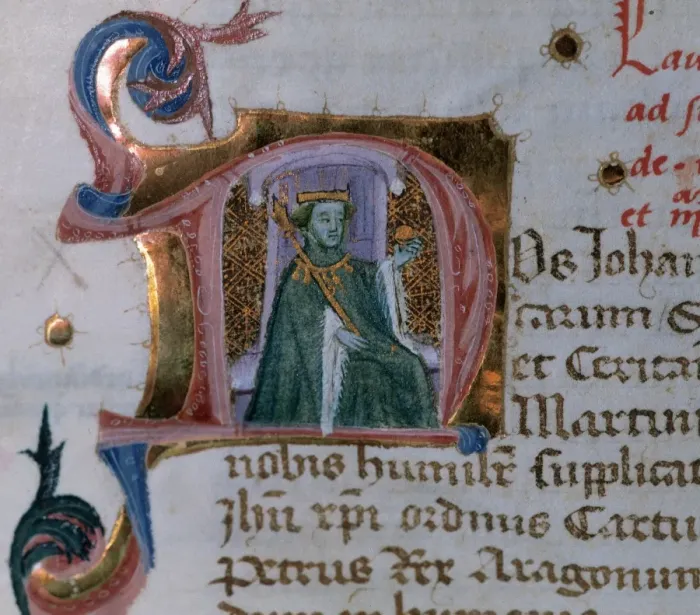 Lau
ad
de
et
NOs Johan
carum S
et Cerita
Martin
nobis humilr̄ supplicat
Jhū xp̄i ordinis Cartu
Petrus Rex Aragonum